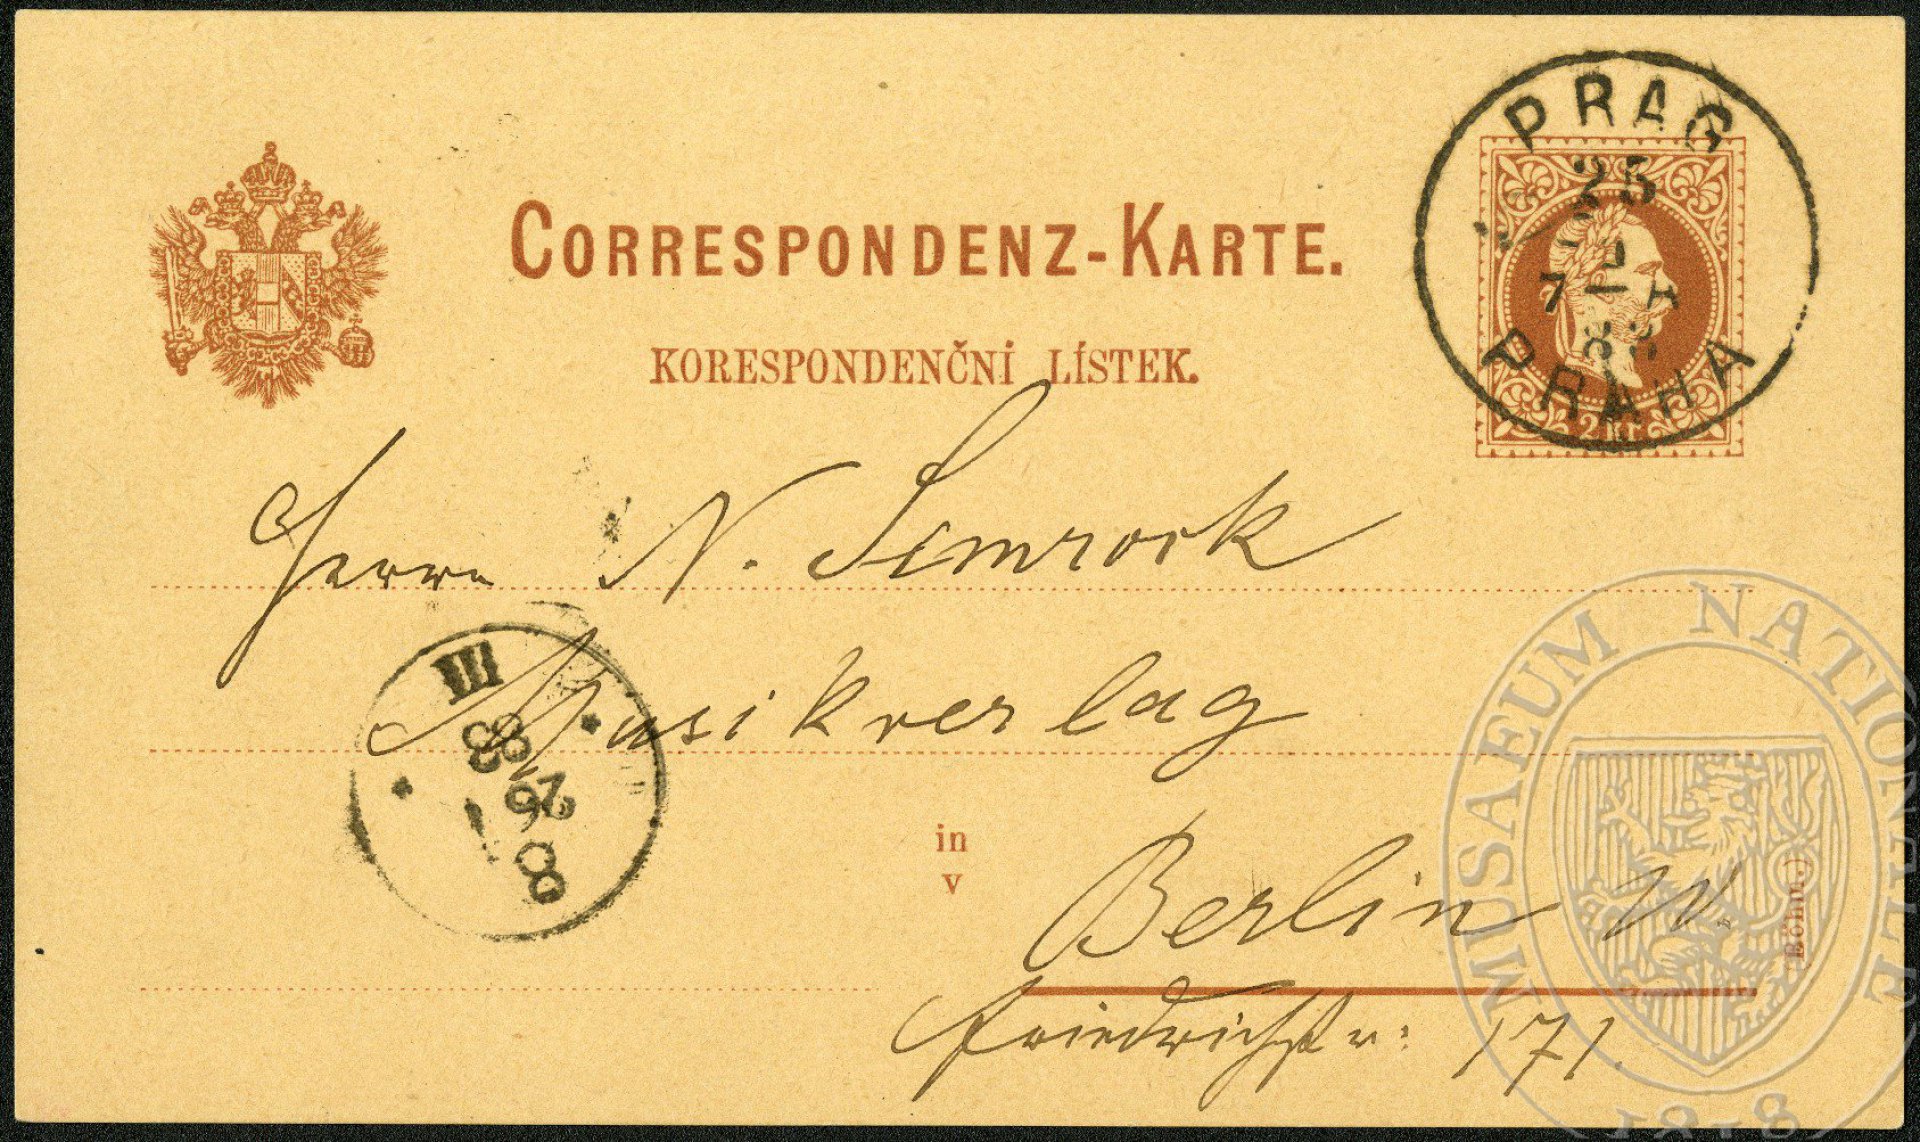 CORRESPONDENZ-KARTE.
KORESPONDENČNÍ LÍSTEK.
PRAG
25
7 A
83
PRAHA
2 kr
Herrn N. Simrock
Musikverlag
in
v
Berlin W.
Friedrichstr: 171.
III
83
26
1
8
(Böhm.)
MUSAEUM NATIONALE
1818